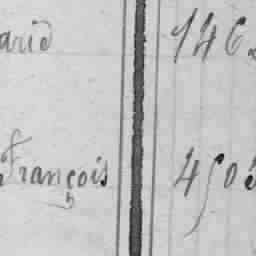 arid 146
François 4503